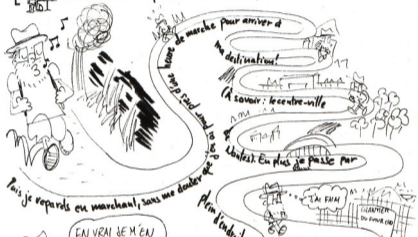 Puis je repars en marchant, sans me douter que j'en ai pour plus d'une heure de marche pour arriver à
ma destination!
(À savoir: le centre-ville
de Nantes). En plus je passe par
plein d'endroits
J'AI FAIM
CHANTIER
EN VRAI JE M'EN